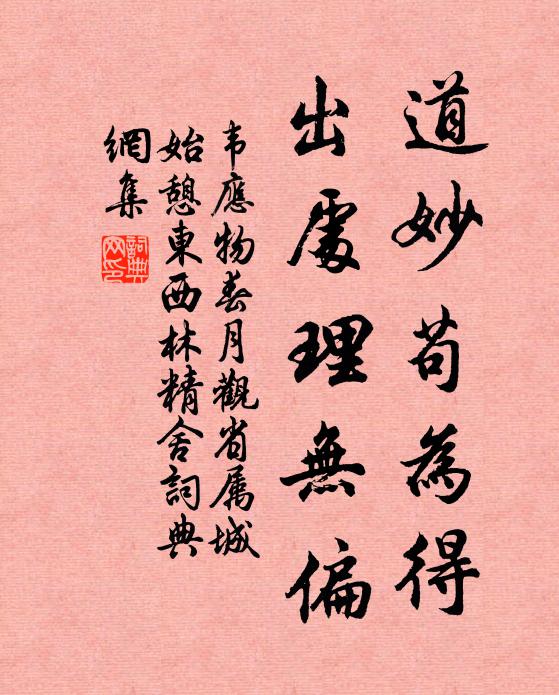 道妙苟為得
出處理無偏
韦應物春月觀省属城
始憩東西林精舍詞典
網集
詞典
网印